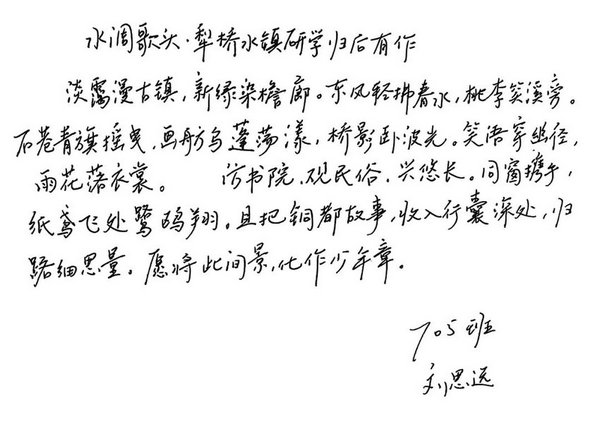 水调歌头·犁桥水镇研学归后有作
淡霭漫古镇,新绿染檐廊。东风轻拂春水,桃李笑溪旁。
石巷青旗摇曳,画舫乌蓬荡漾,桥影卧波光。笑语穿幽径,
雨花落衣裳。 访书院,观民俗,兴悠长。同窗携手,
纸鸢飞处鹭鸥翔。且把铜都故事,收入行囊深处,归
路细思量。愿将此间景,化作少年章。
705班
刘思远